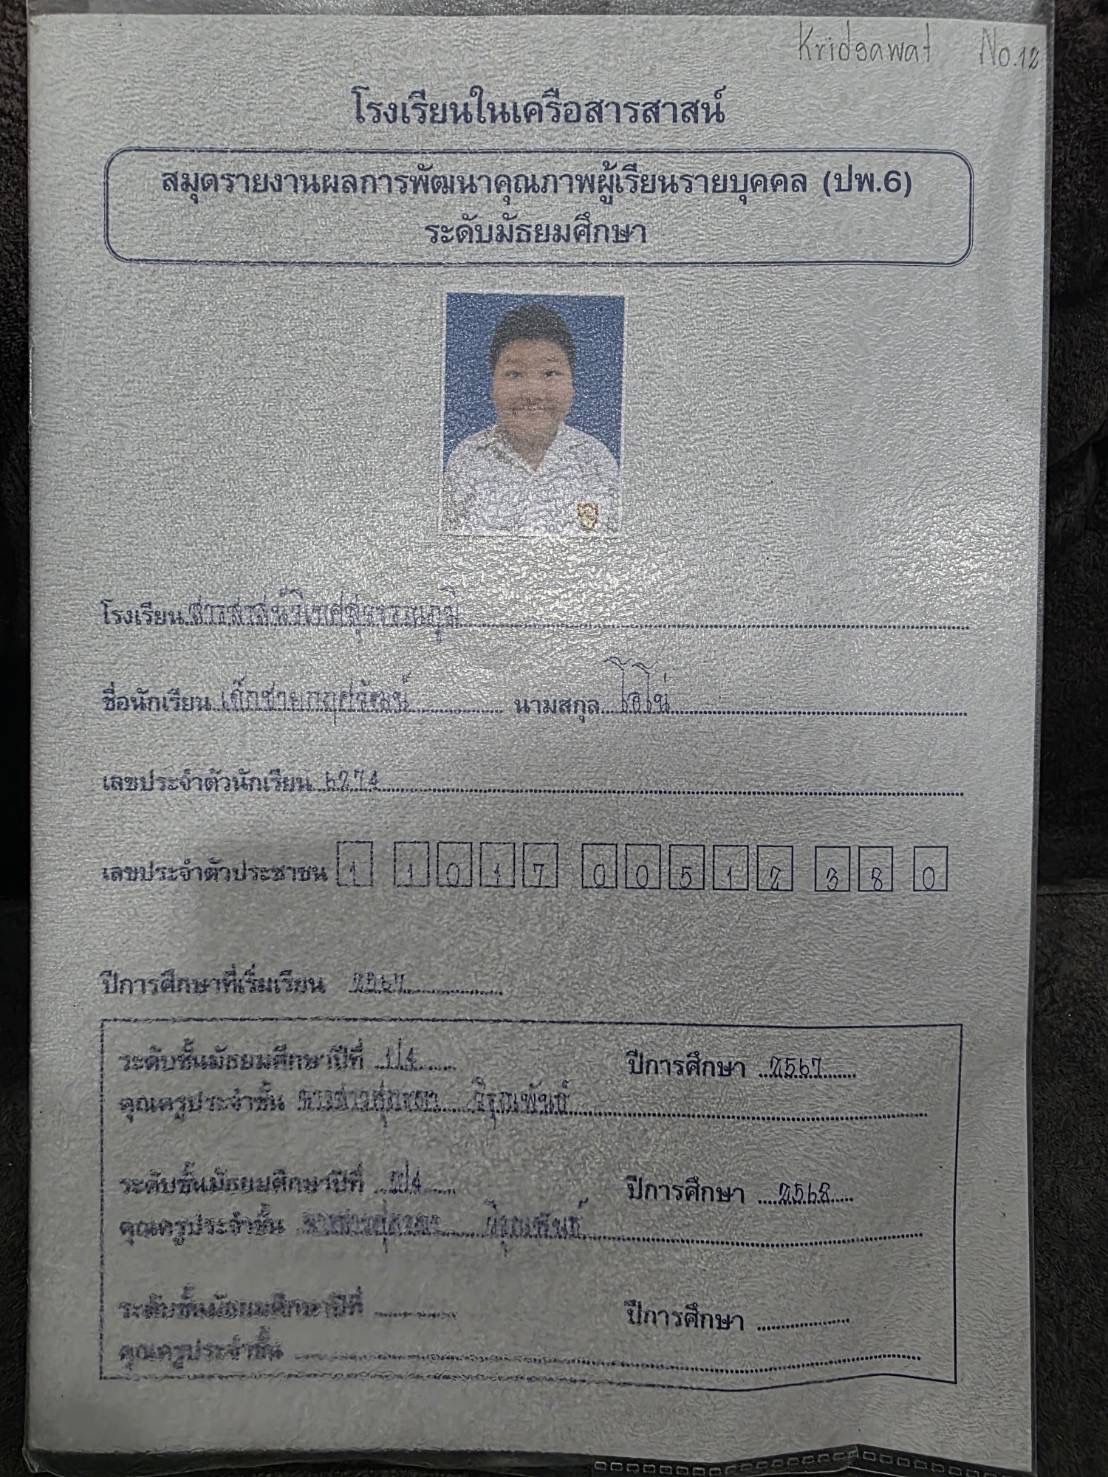 Kridsawat No.12
โรงเรียนในเครือสารสาสน์
สมุดรายงานผลการพัฒนาคุณภาพผู้เรียนรายบุคคล (ปพ.6)
ระดับมัธยมศึกษา
โรงเรียน สารสาสน์วิเทศสุวรรณภูมิ
ชื่อนักเรียน เด็กชายกฤศวัฒน์ นามสกุล
เลขประจำตัวนักเรียน 6274
เลขประจำตัวประชาชน 1 1017 00512 38 0
ปีการศึกษาที่เริ่มเรียน 2567
ระดับชั้นมัธยมศึกษาปีที่ 1/4 ปีการศึกษา 2567
คุณครูประจำชั้น
ระดับชั้นมัธยมศึกษาปีที่ 2/4 ปีการศึกษา 2568
คุณครูประจำชั้น
ระดับชั้นมัธยมศึกษาปีที่ ปีการศึกษา
คุณครูประจำชั้น